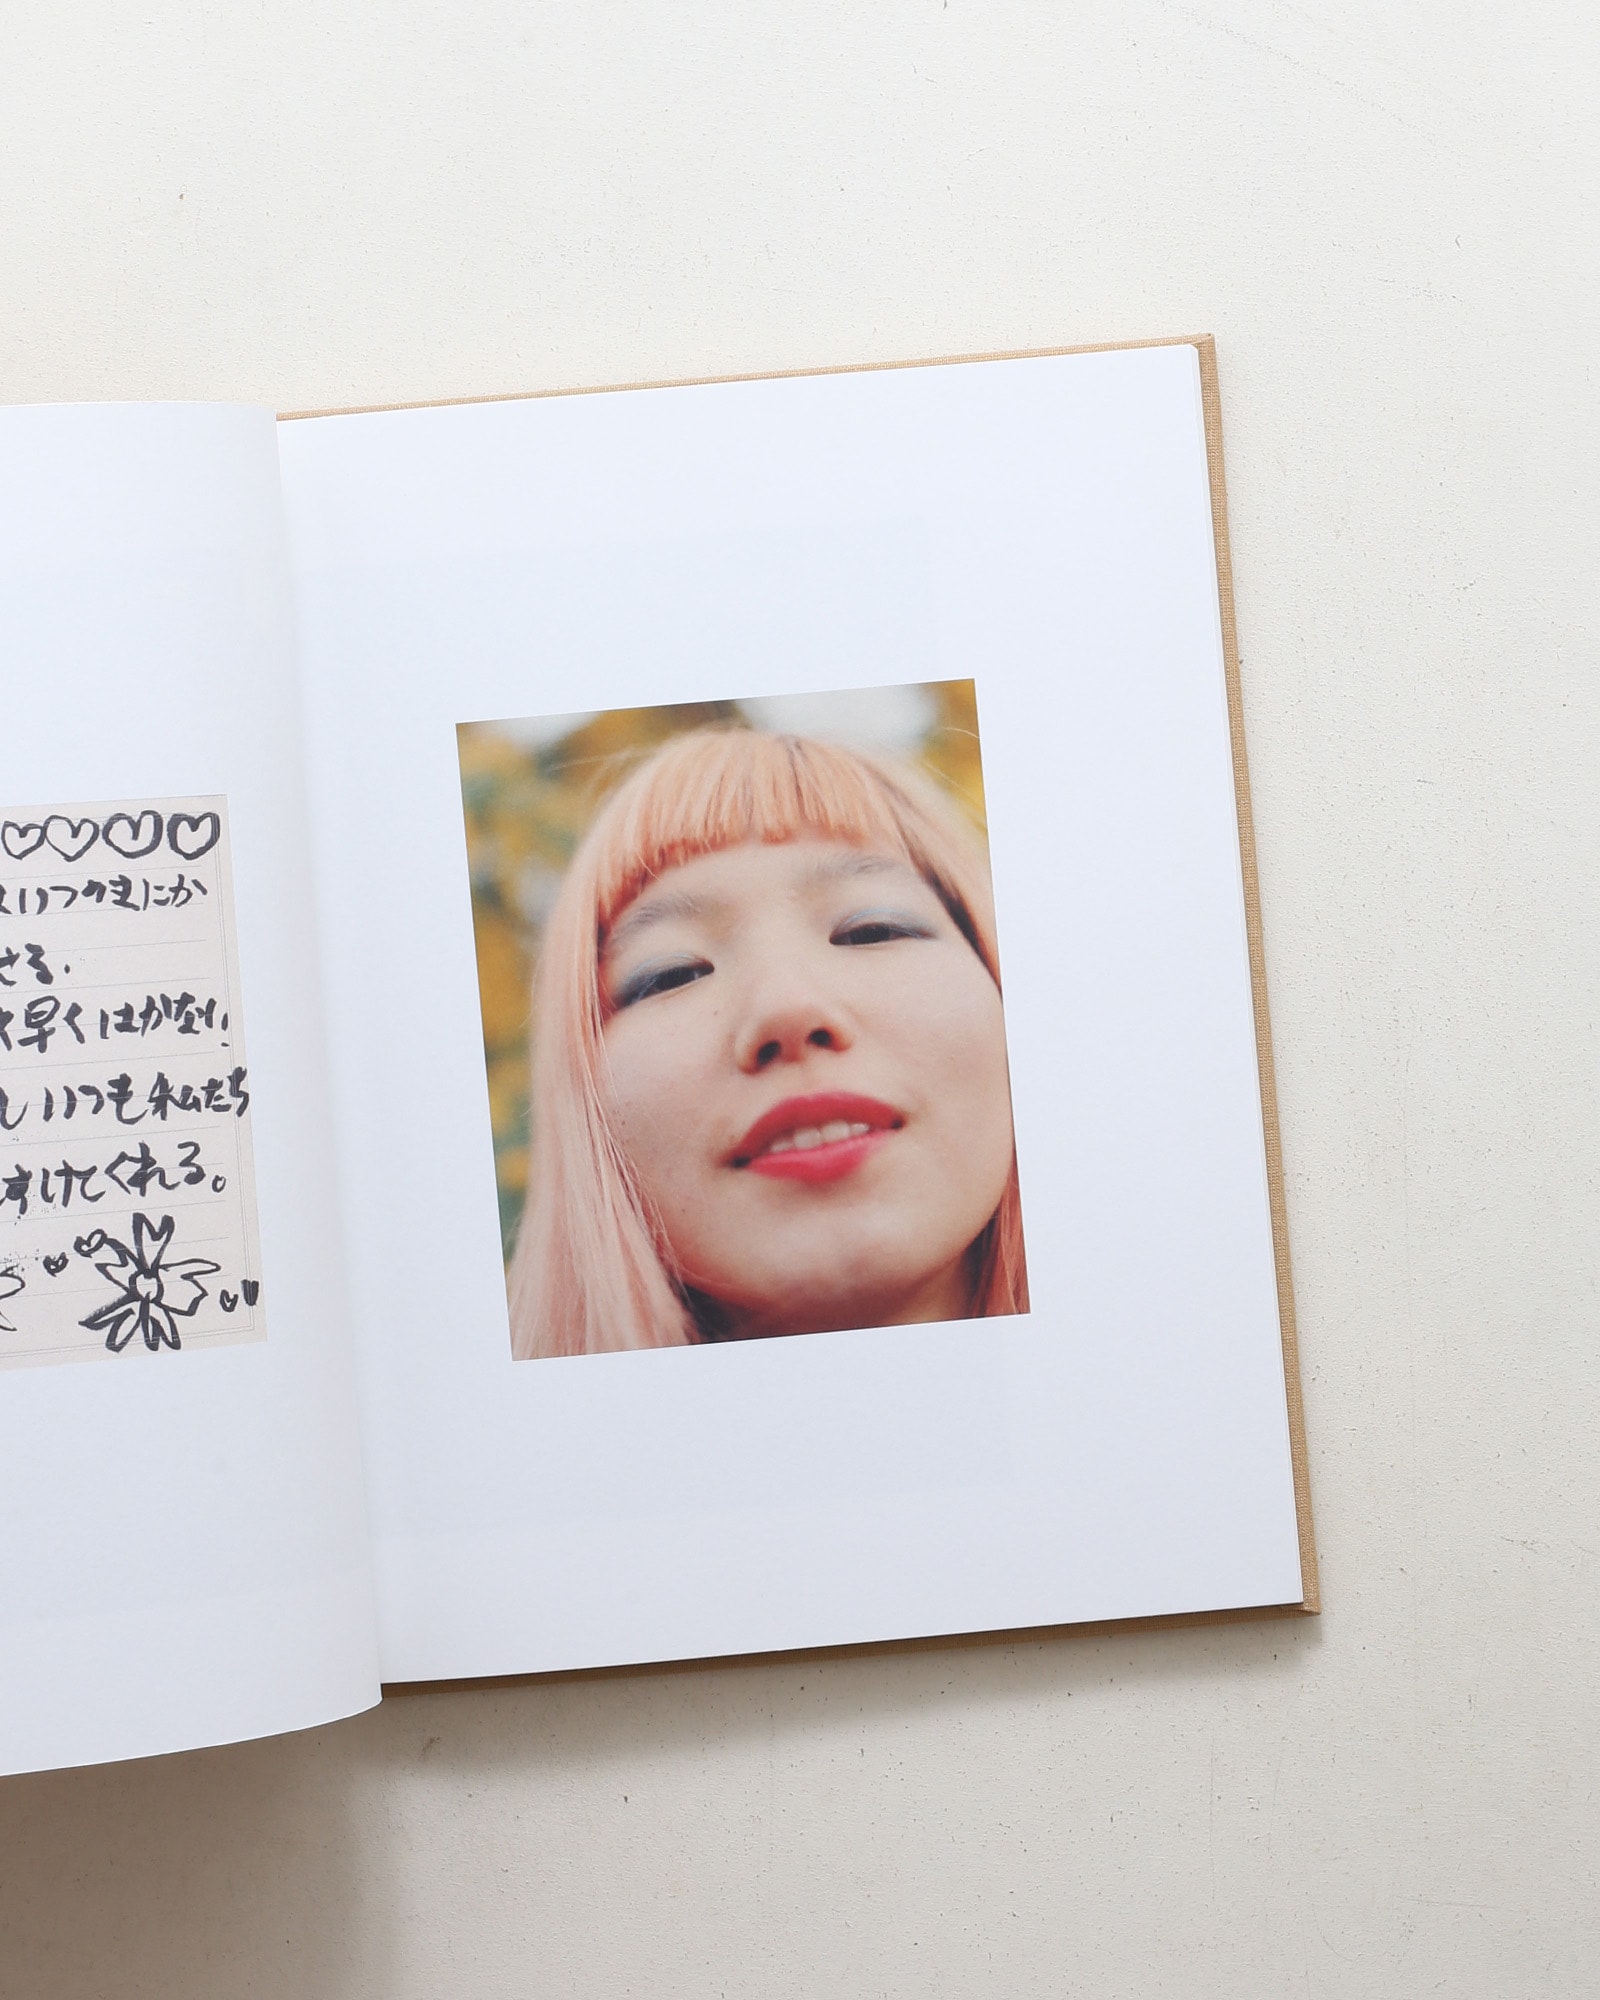 いつのまにか
さる.
早くはかない.
しいつも私たち
すけてくれる。